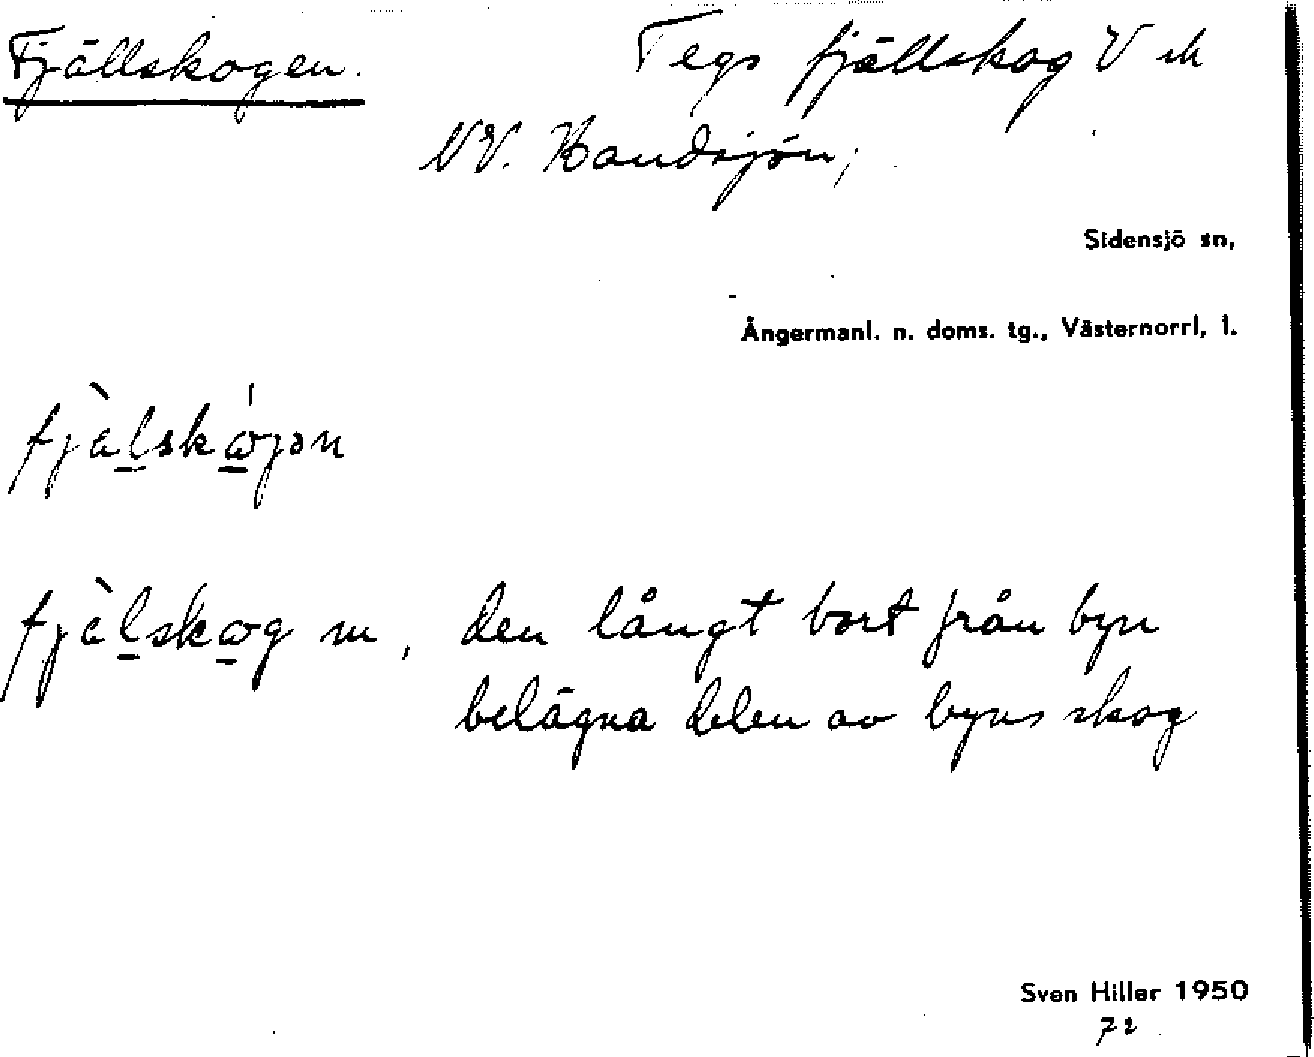 Fjällskogen. Tegs fjällskog V ek
NV. Bandsjön;
Sidensjö sn,
Ångermanl. n. doms. tg., Västernorrl, l.
fjälskogen
fjälskog m, den långt bort från byn
belägna delen av byns skog
Sven Hiller 1950
72